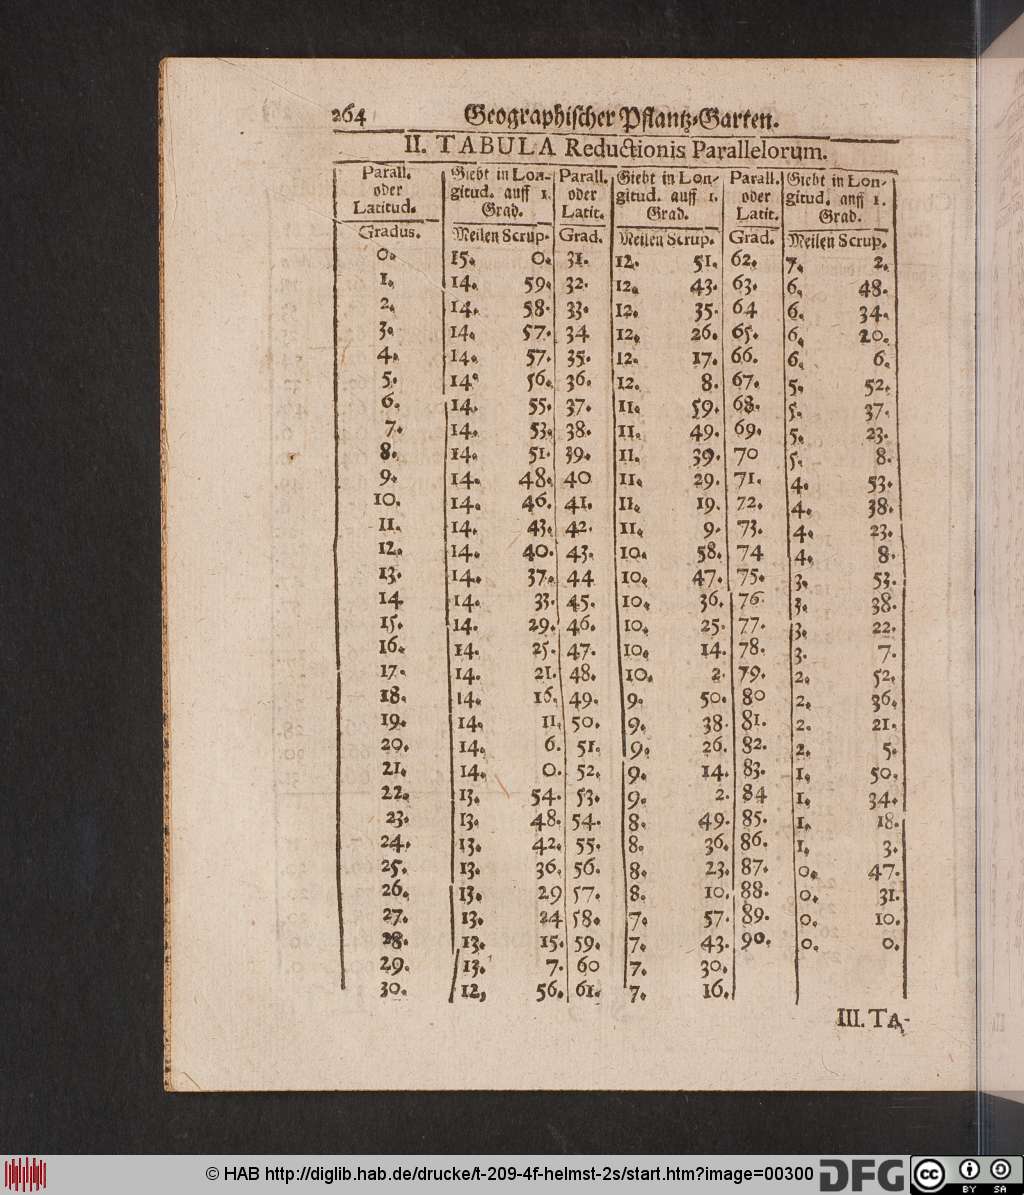 264 Geographischer Pflantz-Garten.
II. TABULA Reductionis Parallelorum.
Parall. Giebt in Lon- Parall. Giebt in Lon- Parall. Giebt in Lon-
oder gitud. auff 1. oder gitud. auff 1. oder gitud. auff 1.
Latitud. Grad. Latit. Grad. Latit. Grad.
Gradus. Meilen Scrup. Grad. Meilen Scrup. Grad. Meilen Scrup.
0. 15. 0. 31. 12. 51. 62. 7. 2.
1. 14. 59. 32. 12. 43. 63. 6. 48.
2. 14. 58. 33. 12. 35. 64 6. 34.
3. 14. 57. 34 12. 26. 65. 6. 20.
4. 14. 57. 35. 12. 17. 66. 6. 6.
5. 14. 56. 36. 12. 8. 67. 5. 52.
6. 14. 55. 37. 11. 59. 68. 5. 37.
7. 14. 53. 38. 11. 49. 69. 5. 23.
8. 14. 51. 39. 11. 39. 70 5. 8.
9. 14. 48. 40 11. 29. 71. 4. 53.
10. 14. 46. 41. 11. 19. 72. 4. 38.
11. 14. 43. 42. 11. 9. 73. 4. 23.
12. 14. 40. 43. 10. 58. 74 4. 8.
13. 14. 37. 44 10. 47. 75. 3. 53.
14 14. 33. 45. 10. 36. 76. 3. 38.
15. 14. 29. 46. 10. 25. 77. 3. 22.
16. 14. 25. 47. 10. 14. 78. 3. 7.
17. 14. 21. 48. 10. 2. 79. 2. 52.
18. 14. 16. 49. 9. 50. 80 2. 36.
19. 14. 11. 50. 9. 38. 81. 2. 21.
20. 14. 6. 51. 9. 26. 82. 2. 5.
21. 14. 0. 52. 9. 14. 83. 1. 50.
22. 13. 54. 53. 9. 2. 84 1. 34.
23. 13. 48. 54. 8. 49. 85. 1. 18.
24. 13. 42. 55. 8. 36. 86. 1. 3.
25. 13. 36. 56. 8. 23. 87. 0. 47.
26. 13. 29 57. 8. 10. 88. 0. 31.
27. 13. 24 58. 7. 57. 89. 0. 10.
28. 13. 15. 59. 7. 43. 90. 0. 0.
29. 13. 7. 60 7. 30.
30. 12, 56. 61. 7. 16.
III. TA-
© HAB http://diglib.hab.de/drucke/t-209-4f-helmst-2s/start.htm?image=00300 DFG cc BY SA